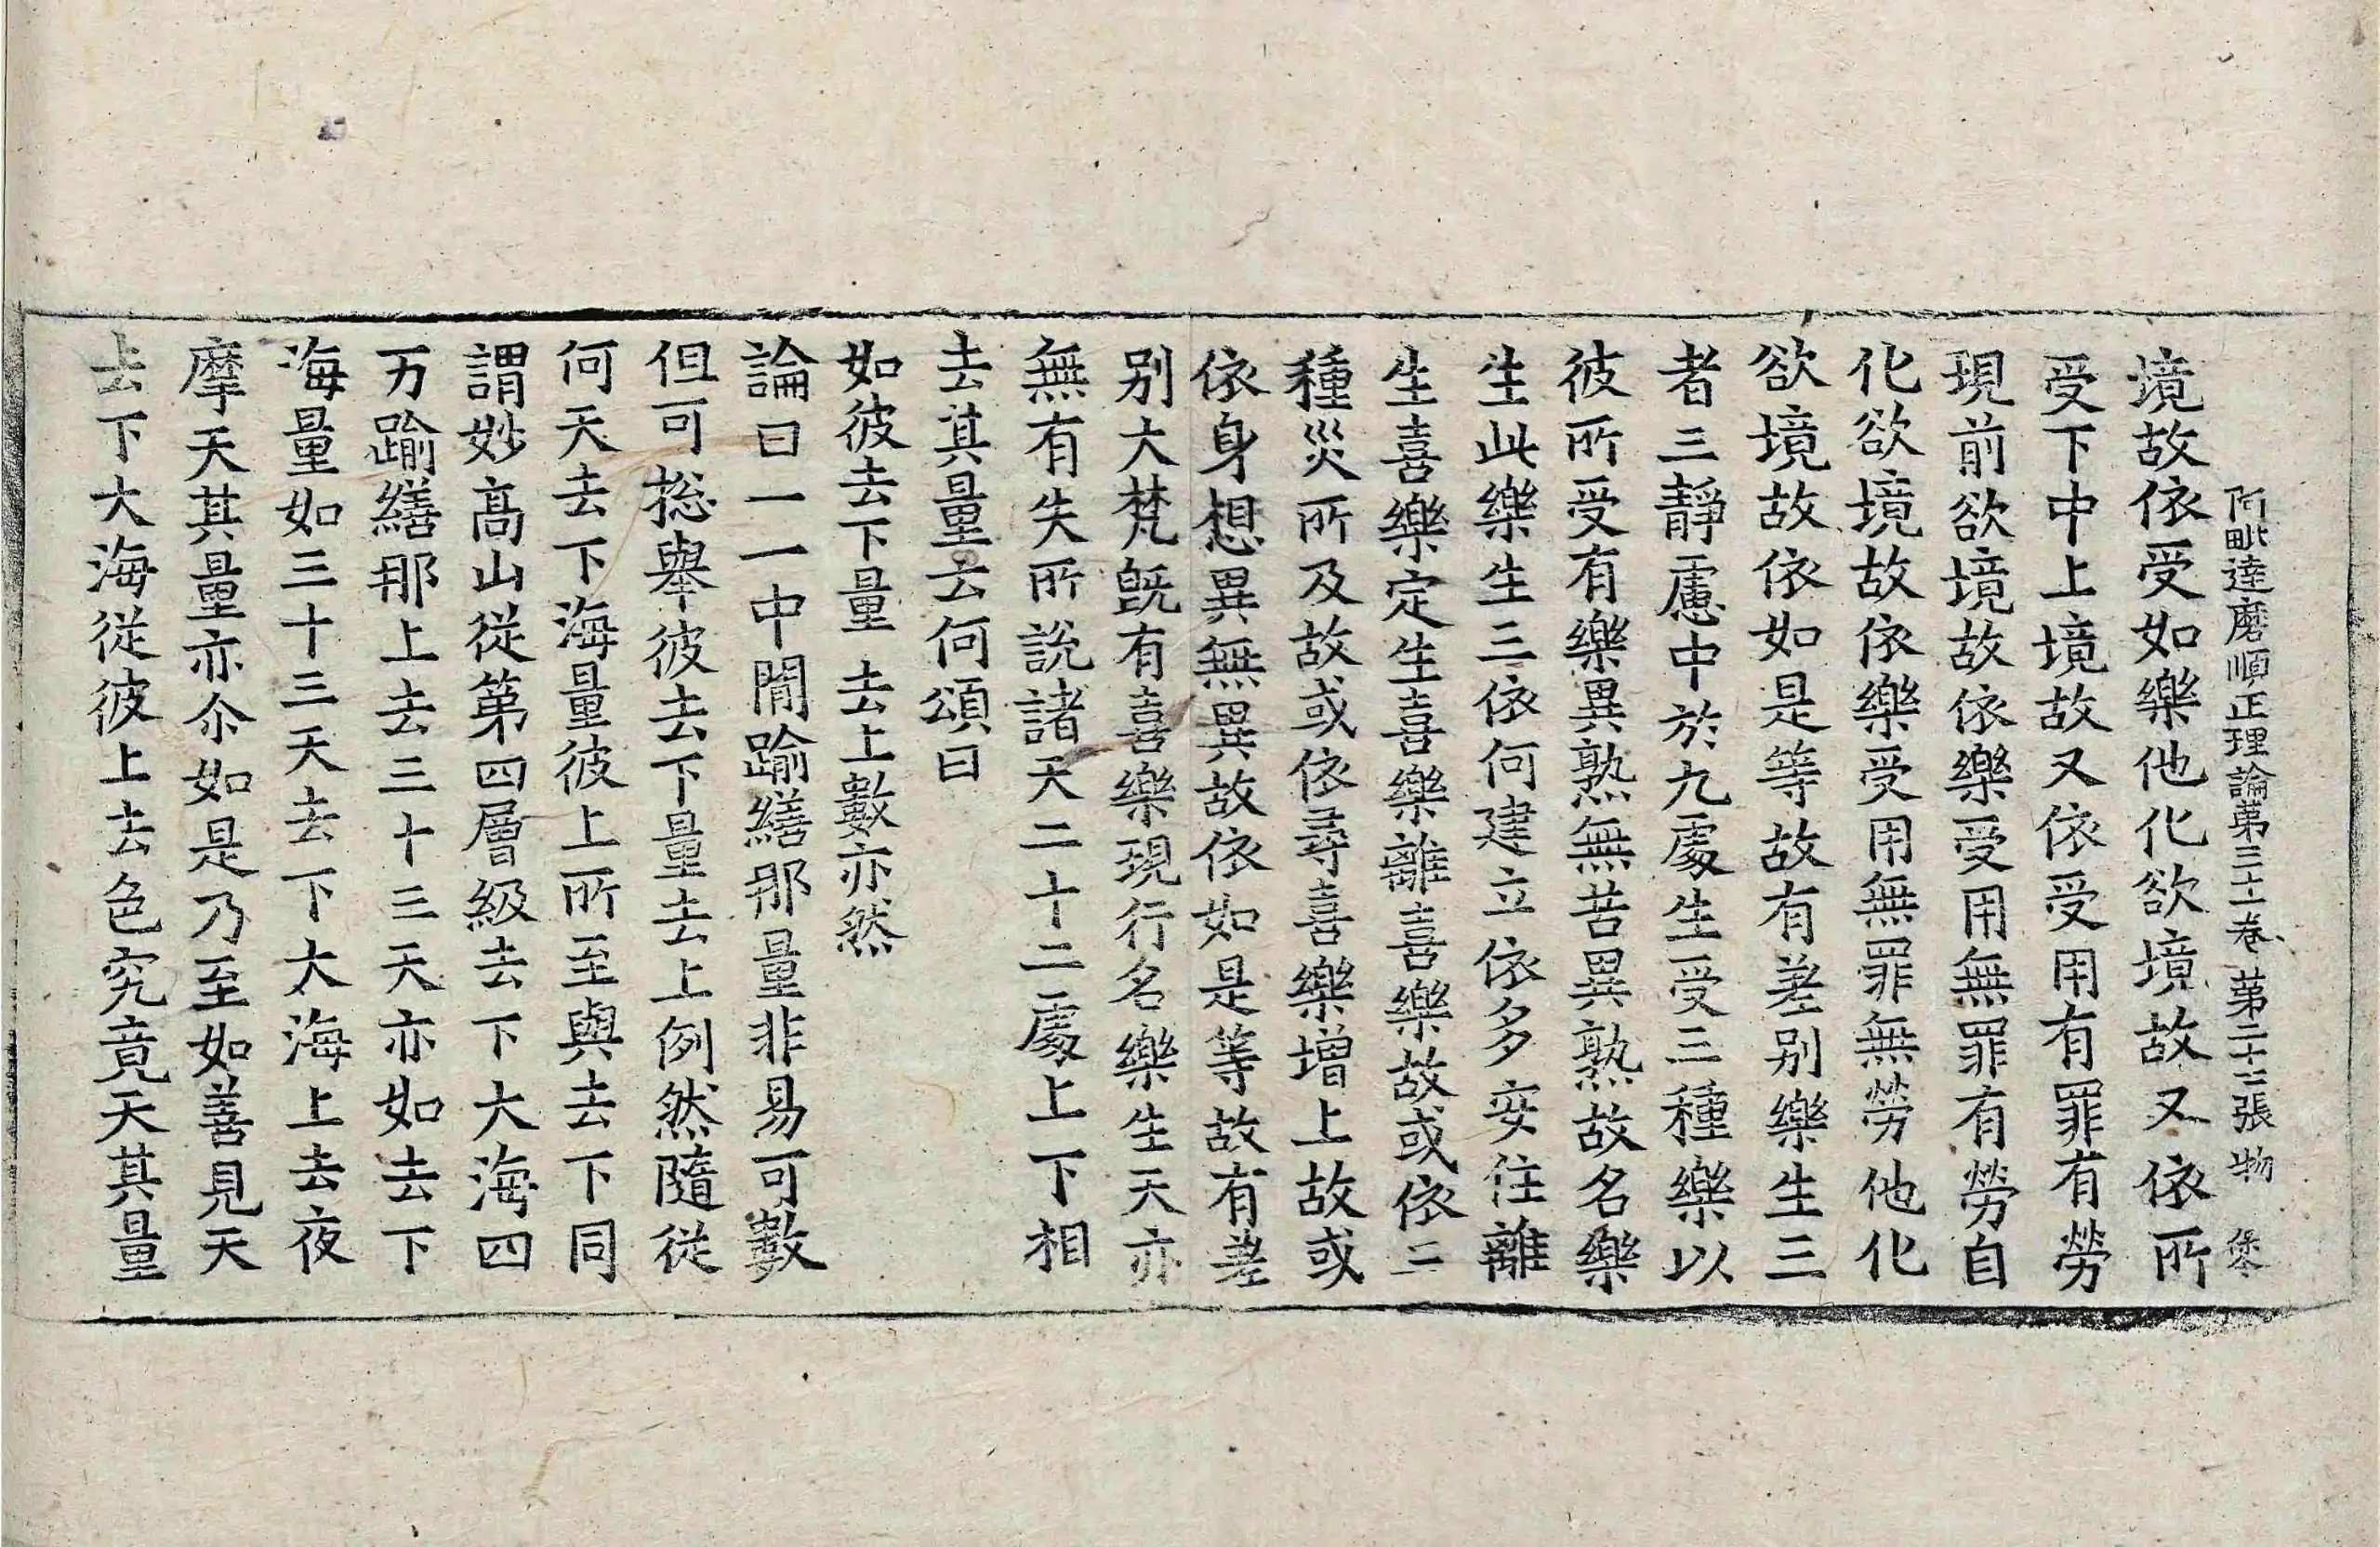 阿毗達磨順正理論第三十一卷 第二十二張 物
境故依受如樂他化欲境故又依所
受下中上境故又依受用有罪有勞
現前欲境故依樂受用無罪有勞自
化欲境故依樂受用無罪無勞他化
欲境故依如是等故有差別樂生三
者三靜慮中於九處生受三種樂以
彼所受有樂異熟無苦異熟故名樂
生此樂生三依何建立依多安住離
生喜樂定生喜樂離喜樂故或依三
種災所及故或依尋喜樂增上故或
依身想異無異故依如是等故有差
別大梵旣有喜樂現行名樂生天亦
無有失所說諸天二十二處上下相
去其量云何頌曰
如彼去下量 去上數亦然
論曰一一中間踰繕那量非易可數
但可捴舉彼去下量去上例然隨從
何天去下海量彼上所至與去下同
謂妙高山從第四層級去下大海四
万踰繕那上去三十三天亦如去下
海量如三十三天去下大海上去夜
摩天其量亦尒如是乃至如善見天
去下大海從彼上去色究竟天其量